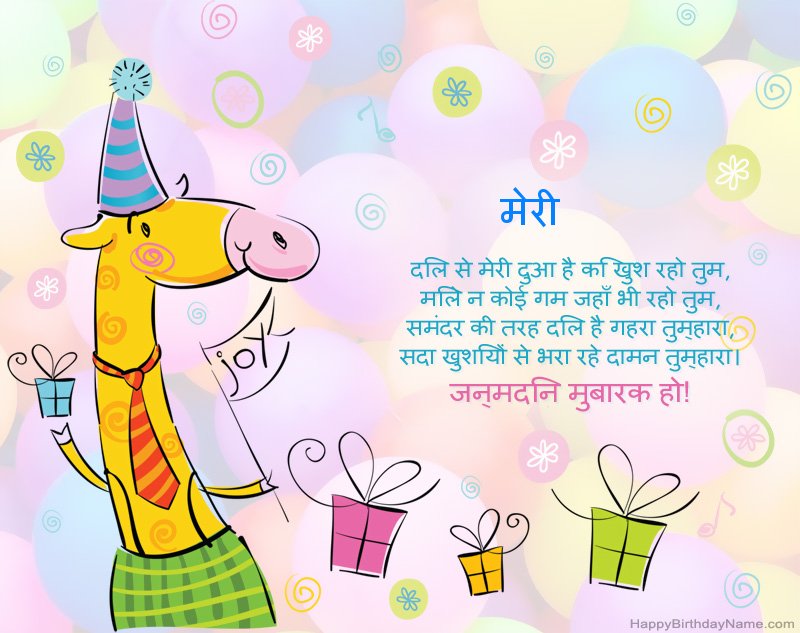 मेरी
joy
दलि से मेरी दुआ है क िखुश रहो तुम,
मलिे न कोई गम जहाँ भी रहो तुम,
समंदर की तरह दलि है गहरा तुम्‌हारा,
सदा खुशयिों से भरा रहे दामन तुम्‌हारा।
जन्‌मदनि मुबारक हो!
HappyBirthdayName.com